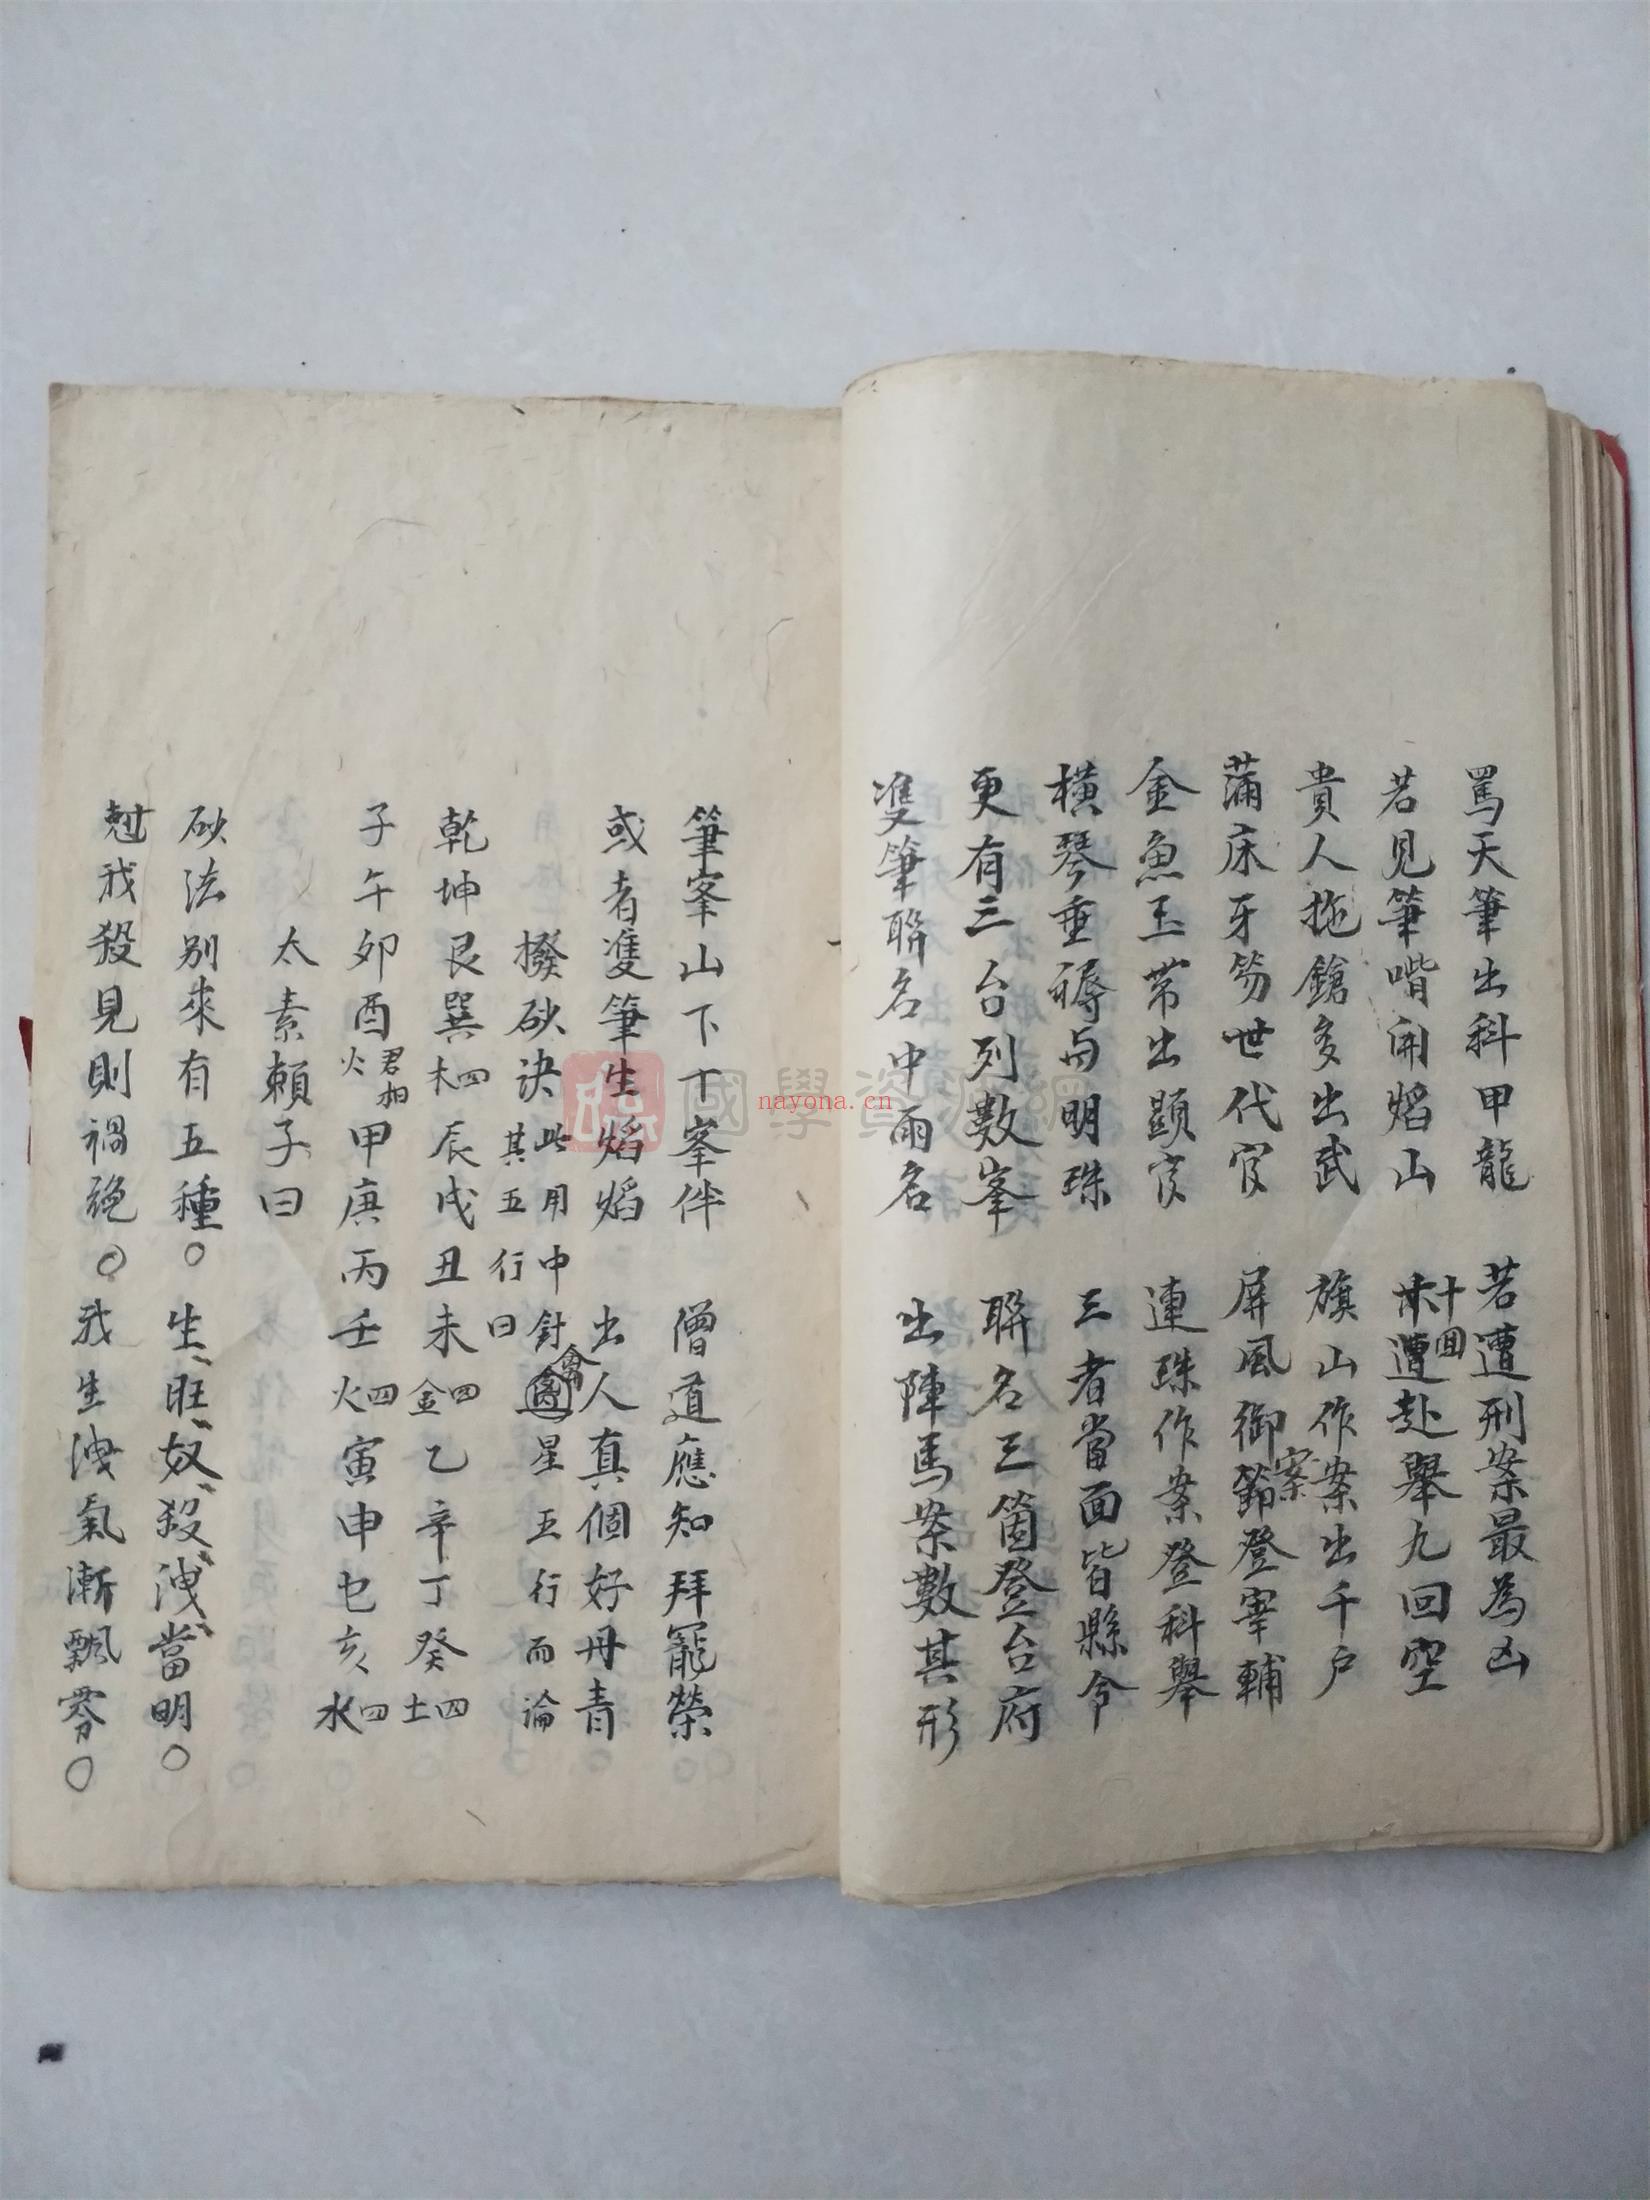 罵天筆出科甲龍 若遭刑案最為凶
若見筆喈開焰山 十遭赴舉九回空
十回
貴人拖鎗多出武 旗山作案出千户
蒲床牙笏世代官 屏風御節登宰輔
案
金魚玉帶出顯官 連珠作案登科舉
橫琴垂褥与明珠 三者當面皆縣令
更有三台列數峯 聯名三箇登台府
隻筆聯名中兩名 出陣馬案數其形
筆峯山下丁峯伴 僧道應知拜寵榮
或者隻筆生焰焰 出人真個好丹青
撥砂決 此用中針禽星五行而論
其五行曰
乾坤艮巽四木 辰戌丑未四金 乙辛丁癸四土
子午卯酉君相火 甲庚丙壬四火 寅申巳亥四水
太素賴子曰
砂法别來有五種。生、旺、奴、殺、洩、當明。
尅我殺見則禍絕。我生洩氣漸飄零。
國學資源網
nayona.cn